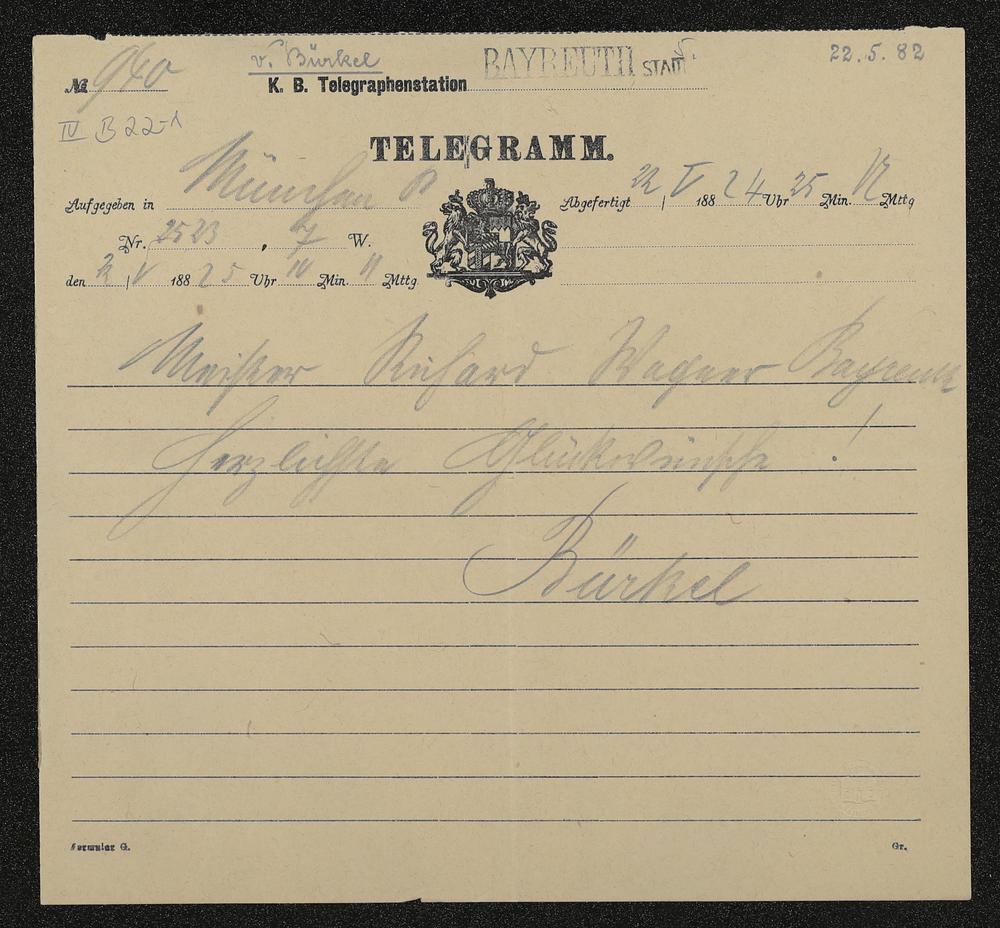 № 940 v. Bürkel BAYREUTH STADT 22.5.82
K. B. Telegraphenstation
IV B 22-1
TELEGRAMM.
Aufgegeben in München
Abgefertigt 22 / V 188 2 4 Uhr 25 Min. Mttg
Nr. 2523, 7 W.
den 22 / V 188 2 5 Uhr 10 Min. Mttg
Meister Richard Wagner Bayreuth
Herzlichste Glückwünsche!
Bürkel
Formular G. Gr.